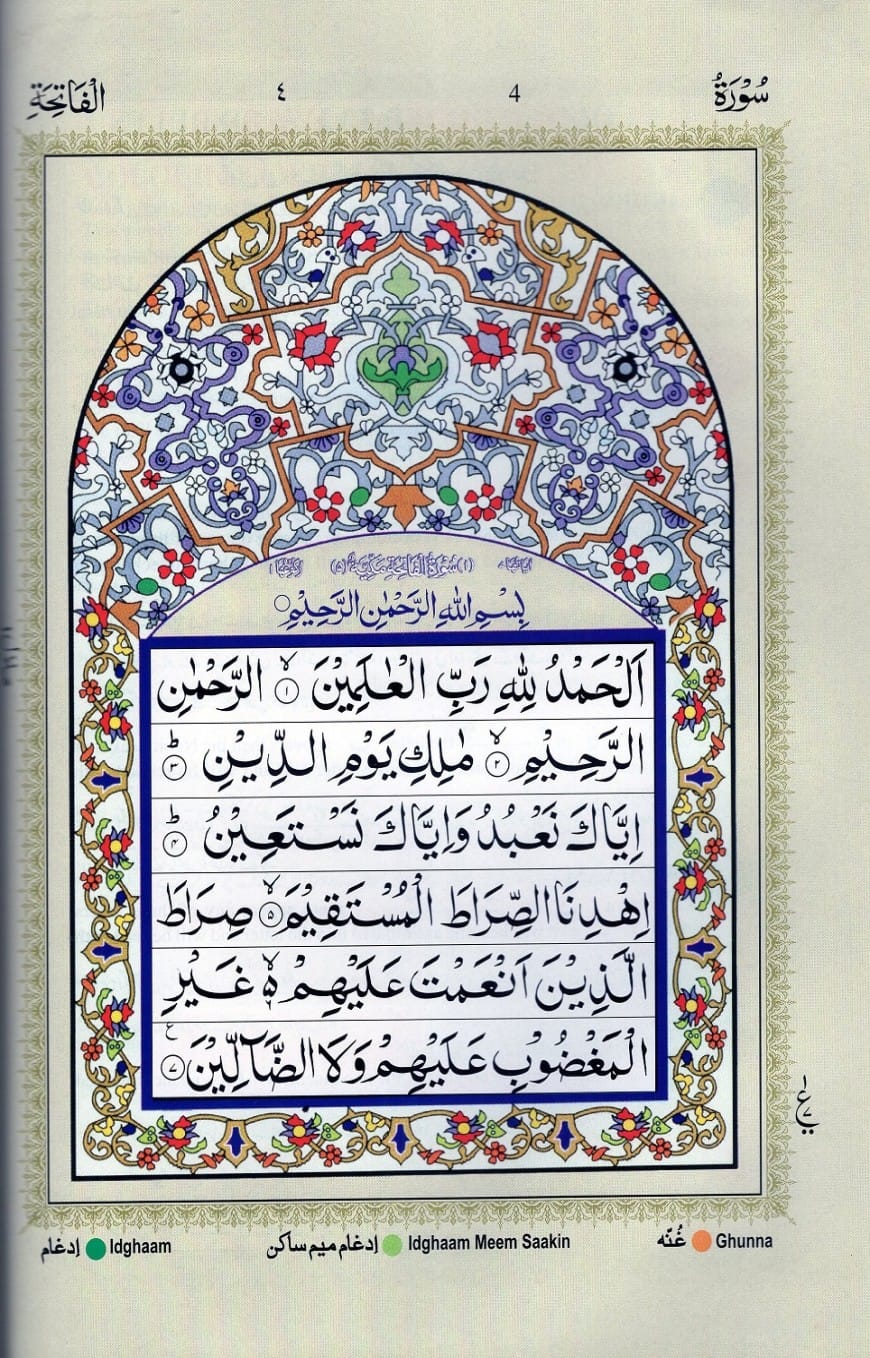 سُوْرَةُ 4 ٤ الْفَاتِحَةِ
اٰيَاتُهَا ٧ (١) سُوْرَةُ الْفَاتِحَةِ مَكِّيَّةٌ (٥)
بِسْمِ اللّٰهِ الرَّحْمٰنِ الرَّحِيْمِ ○
اَلْحَمْدُ لِلّٰهِ رَبِّ الْعٰلَمِيْنَ ۙ﴿۱﴾ الرَّحْمٰنِ
الرَّحِيْمِ ۙ﴿۲﴾ مٰلِكِ يَوْمِ الدِّيْنِ ؕ﴿۳﴾
اِيَّاكَ نَعْبُدُ وَاِيَّاكَ نَسْتَعِيْنُ ؕ﴿۴﴾
اِهْدِنَا الصِّرَاطَ الْمُسْتَقِيْمَ ۙ﴿۵﴾ صِرَاطَ
الَّذِيْنَ اَنْعَمْتَ عَلَيْهِمْ ۙ۬ۦ غَيْرِ
الْمَغْضُوْبِ عَلَيْهِمْ وَلَا الضَّآلِّيْنَ ﴿۷﴾ ع
ع ٧
غُنّه Ghunna إدغام ميم ساكن Idghaam Meem Saakin إدغام Idghaam